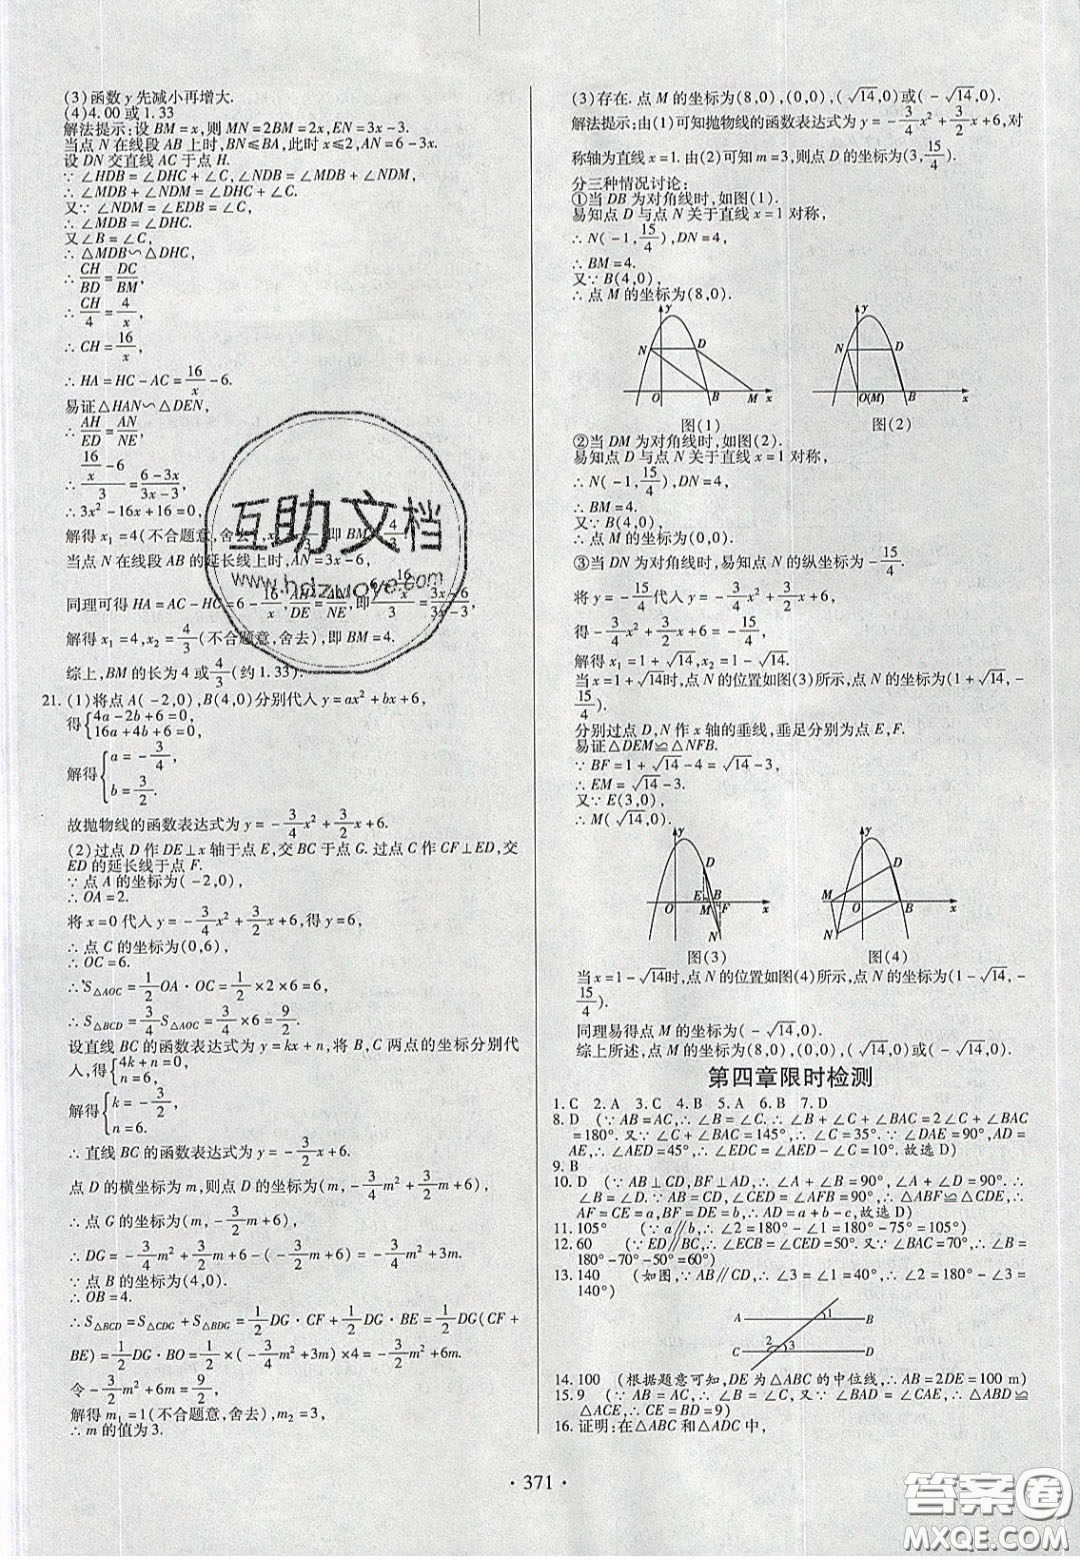 (3)函数 y 先减小再增大.
(4)4.00 或 1.33
解法提示:设 BM=x,则 MN=2BM=2x,EN=3x-3.
当点 N 在线段 AB 上时,BN≤BA,此时 x≤2,AN=6-3x.
设 DN 交直线 AC 于点 H.
∵∠HDB=∠DHC+∠C,∠NDB=∠MDB+∠NDM,
∴∠MDB+∠NDM=∠DHC+∠C.
又∵∠NDM=∠EDB=∠C,
∴∠MDB=∠DHC.
又∠B=∠C,
∴△MDB∽△DHC,
∴CH/BD=DC/BM,
∴CH/4=4/x,
∴CH=16/x,
∴HA=HC-AC=16/x-6.
易证△HAN∽△DEN,
∴AH/ED=AN/NE,
∴(16/x-6)/3=(6-3x)/(3x-3),
∴3x²-16x+16=0,
解得 x₁=4(不合题意,舍去),x₂=4/3,即 BM=4/3.
当点 N 在线段 AB 的延长线上时,AN=3x-6,
同理可得 HA=AC-HC=6-16/x,AH/DE=AN/NE,即(6-16/x)/3=(3x-6)/(3x-3),
解得 x₁=4,x₂=4/3(不合题意,舍去),即 BM=4.
综上,BM 的长为 4 或4/3(约 1.33).
21.(1)将点 A(-2,0),B(4,0)分别代入 y=ax²+bx+6,
得{4a-2b+6=0,
16a+4b+6=0,
解得{a=-3/4,
b=3/2.
故抛物线的函数表达式为 y=-3/4x²+3/2x+6.
(2)过点 D 作 DE⊥x 轴于点 E,交 BC 于点 G.过点 C 作 CF⊥ED,交
ED 的延长线于点 F.
∵点 A 的坐标为(-2,0),
∴OA=2.
将 x=0 代入 y=-3/4x²+3/2x+6,得 y=6,
∴点 C 的坐标为(0,6),
∴OC=6.
∴S△AOC=1/2OA·OC=1/2×2×6=6,
∴S△BCD=3/4S△AOC=3/4×6=9/2.
设直线 BC 的函数表达式为 y=kx+n,将 B、C 两点的坐标分别代
入,得{4k+n=0,
n=6,
解得{k=-3/2,
n=6.
∴直线 BC 的函数表达式为 y=-3/2x+6.
点 D 的横坐标为 m,则点 D 的坐标为(m,-3/4m²+3/2m+6),
∴点 G 的坐标为(m,-3/2m+6),
∴DG=-3/4m²+3/2m+6-(-3/2m+6)=-3/4m²+3m.
∵点 B 的坐标为(4,0).
∴OB=4.
∴S△BCD=S△CDG+S△BDG=1/2DG·CF+1/2DG·BE=1/2DG(CF+
BE)=1/2DG·BO=1/2×(-3/4m²+3m)×4=-3/2m²+6m.
令-3/2m²+6m=9/2,
解得 m₁=1(不合题意,舍去),m₂=3,
∴m 的值为 3.
(3)存在.点 M 的坐标为(8,0),(0,0),(√14,0)或(-√14,0).
解法提示:由(1)可知抛物线的函数表达式为 y=-3/4x²+3/2x+6,对
称轴为直线 x=1.由(2)可知 m=3,则点 D 的坐标为(3,15/4).
分三种情况讨论:
①当 DB 为对角线时,如图(1).
易知点 D 与点 N 关于直线 x=1 对称,
∴N(-1,15/4),DN=4,
∴BM=4.
又∵B(4,0),
∴点 M 的坐标为(8,0).
y
N
D
O
B
M
x
图(1)
y
N
D
O(M)
B
x
图(2)
②当 DM 为对角线时,如图(2).
易知点 D 与点 N 关于直线 x=1 对称,
∴N(-1,15/4),DN=4,
∴BM=4.
又∵B(4,0),
∴点 M 的坐标为(0,0).
③当 DN 为对角线时,易知点 N 的纵坐标为-15/4.
将 y=-15/4代入 y=-3/4x²+3/2x+6,
得-3/4x²+3/2x+6=-15/4,
解得 x₁=1+√14,x₂=1-√14.
当 x=1+√14时,点 N 的位置如图(3)所示,点 N 的坐标为(1+√14,-
15/4).
分别过点 D,N 作 x 轴的垂线,垂足分别为点 E,F.
易证△DEM≌△NFB.
∵BF=1+√14-4=√14-3,
∴EM=√14-3.
又∵E(3,0),
∴M(√14,0).
y
D
E
B
O
M
F
x
N
图(3)
y
D
M
O
B
x
N
图(4)
当 x=1-√14时,点 N 的位置如图(4)所示,点 N 的坐标为(1-√14,-
15/4).
同理易得点 M 的坐标为(-√14,0).
综上所述,点 M 的坐标为(8,0),(0,0),(√14,0)或(-√14,0).
第四章限时检测
1.C 2.A 3.C 4.B 5.A 6.B 7.D
8.D (∵AB=AC,∴∠B=∠C.∴∠B+∠C+∠BAC=2∠C+∠BAC
=180°.又∵∠C+∠BAC=145°,∴∠C=35°.∵∠DAE=90°,AD=
AE,∴∠AED=45°,∴∠EDC=∠AED-∠C=10°.故选 D)
9.B
10.D (∵AB⊥CD,BF⊥AD,∴∠A+∠B=90°,∠A+∠D=90°.∴
∠B=∠D.∵AB=CD,∠CED=∠AFB=90°,∴△ABF≌△CDE,∴
AF=CE=a,BF=DE=b,∴AD=a+b-c,故选 D)
11.105° (∵a∥b,∴∠2=180°-∠1=180°-75°=105°)
12.60 (∵ED∥BC,∴∠ECB=∠CED=50°.又∵∠A=70°,∴∠B=
180°-70°-50°=60°)
13.140 (如图,∵AB∥CD,∴∠3=∠1=40°,∴∠2=180°-∠3=
140°)
A
1
B
2
C
3
D
14.100 (根据题意可知,DE 为△ABC 的中位线,∴AB=2DE=100 m)
15.9 (∵AB=AC,∴∠B=∠C,又∵∠BAD=∠CAE,∴△ABD≌
△ACE,∴CE=BD=9)
16.证明:在△ABC 和△ADC 中,
·371·
互助文档
www.hdzuoye.com
答案圈
MXQE.COM